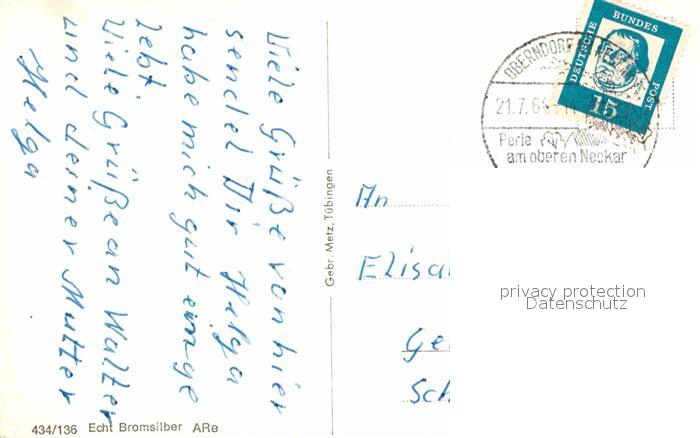 Viele Grüße von hier
sendet Dir Helga
habe mich gut einge
lebt.
Viele Grüße an Walter
und deiner Mutter
Helga
434/136 Echt Bromsilber ARe
Gebr. Metz, Tübingen
DEUTSCHE BUNDES POST
15
OBERNDORF
21.7.64
Perle
am oberen Neckar
An
Elisa
Ge
Sch
privacy protection
Datenschutz